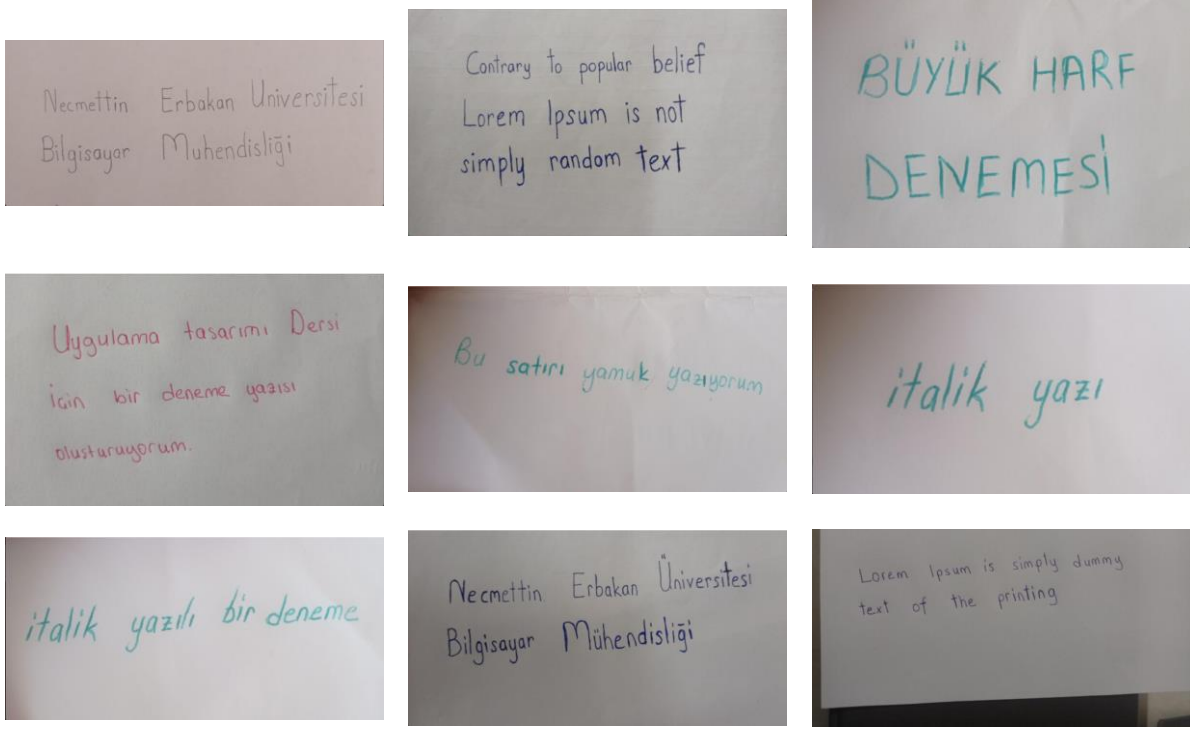 Necmettin Erbakan Üniversitesi
Bilgisayar Muhendisliği
Contrary to popular belief
Lorem Ipsum is not
simply random text
BÜYÜK HARF
DENEMESİ
Uygulama tasarımı Dersi
için bir deneme yazısı
olusturuyorum.
Bu satırı yamuk yazıyorum
italik yazı
italik yazılı bir deneme
Necmettin Erbakan Üniversitesi
Bilgisayar Mühendisliği
Lorem Ipsum is simply dummy
text of the printing